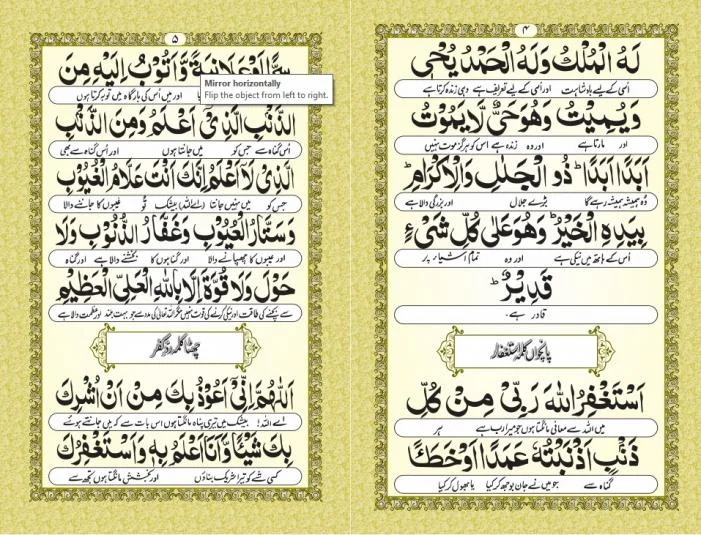 ۴
لَهُ الْمُلْكُ وَلَهُ الْحَمْدُ يُحْيٖ
اُسی کے لیے بادشاہت اور اُسی کے لیے تعریف ہے وہی زندہ کرتا ہے
وَيُمِيْتُ وَهُوَحَيٌّ لَّا يَمُوْتُ
اور مارتا ہے اور وہ زندہ ہے اس کو ہرگز موت نہیں
اَبَدًا اَبَدًاؕ ذُو الْجَلٰلِ وَالْاِكْرَامِؕ
وُہ ہمیشہ ہمیشہ رہے گا بڑے جلال اور بزرگی والا ہے
بِيَدِهِ الْخَيْرُؕ وَهُوَعَلٰى كُلِّ شَیْءٍ
اُس کے ہاتھ میں نیکی ہے اور وہ تمام اشیاء پر
قَدِيْرٌؕ
قادر ہے۔
پانچواں کلمہ استغفار
اَسْتَغْفِرُ اللهَ رَبِّیْ مِنْ كُلِّ
میں اللہ سے معافی مانگتا ہوں جو میرا رب ہے ہر
ذَنْۢبٍ اَذْنَبْتُهٗ عَمَدًا اَوْخَطَـًٔا
گناہ سے جو میں نے جان بوجھ کر کیا یا بھول کر کیا
۵
سِرًّا اَوْعَلَانِيَةً وَّاَتُوْبُ اِلَيْهِ مِنَ
اور میں اُس کی بارگاہ میں توبہ کرتا ہوں
Mirror horizontally
Flip the object from left to right.
الذَّنْۢبِ الَّذِیْٓ اَعْلَمُ وَمِنَ الذَّنْۢبِ
اُس گناہ سے جس کو میں جانتا ہوں اور اُس گناہ سے بھی
الَّذِیْ لَآ اَعْلَمُ اِنَّكَ اَنْتَ عَلَّامُ الْغُيُوْبِ
جس کو میں نہیں جانتا (اے اللہ) بیشک تُو غیبوں کا جاننے والا
وَسَتَّارُ الْعُيُوْبِ وَغَفَّارُ الذُّنُوْبِ وَلَا
اور عیبوں کا چھپانے والا اور گناہوں کا بخشنے والا ہے اور گناہ
حَوْلَ وَلَا قُوَّةَ اِلَّا بِاللهِ الْعَلِیِّ الْعَظِيْمِ
سے بچنے کی طاقت اور نیکی کرنے کی قوت نہیں مگر اللہ تعالیٰ کی مدد سے جو بہت بلند اور عظمت والا ہے
چھٹا کلمہ ردِّ کفر
اَللّٰهُمَّ اِنِّیْٓ اَعُوْذُ بِكَ مِنْ اَنْ اُشْرِكَ
اے اللہ! بیشک میں تیری پناہ مانگتا ہوں اس بات سے کہ میں جانتے ہوئے
بِكَ شَيْئًا وَّاَنَا اَعْلَمُ بِهٖ وَاَسْتَغْفِرُكَ
کسی شے کو تیرا شریک بناؤں اور بخشش مانگتا ہوں تجھ سے